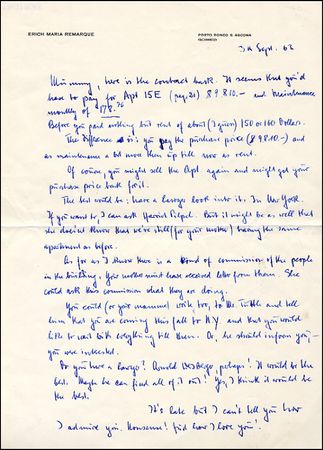 ERICH MARIA REMARQUE
PORTO RONCO S ASCONA
(SCHWEIZ)
3. Sept. 62
here is the contract back. It seems that you'd
have to pay for Apt 15E (pag. 21) $ 9810.– and maintenance
monthly of 178.76
Before you paid nothing but rent of about (I guess) 150 or 160 Dollar.
The difference is: you pay the purchase price ($ 9810.–) and
as maintenance a bit more then up till now as rent.
Of course, you might sell the Apt again and might get your
purchase price back for it.
The best would be: have a lawyer look into it. In New York.
If you want to, I can ask Harriet Pilpel. But it might be as well that
she doesn't know that we're still (for your mother) having the same
apartment as before.
As far as I know there is a board of commission of the people
in the building. Your mother must have received letter from them. She
could ask this commission what they are doing.
You could (or your maman) write, too, to Mr. Tuttle and tell
him that you are coming this fall to N.Y. and that you would
like to wait with everything till then. Or, he should inform you –
you are interested.
Do you have a lawyer? Arnold perhaps? It would be the
best. Maybe he can find all of it out! Yes, I think it would be
the best.
It's late but I can't tell you how
I admire you. Nonsense! And how I love you!